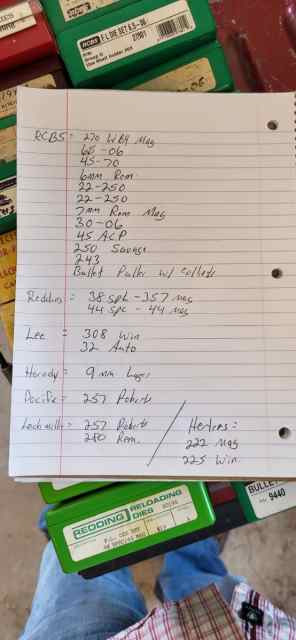 RCBS
F L DIE SET 6.5-06
37001
Group D
Use Shell Holder #03
RCBS = 270 WBY Mag
6.5-06
45-70
6mm Rem
22-250
22-250
7mm Rem Mag
30-06
45 ACP
250 Savage
243
Bullet Puller w/ collets
Redding = 38 spl - 357 mag
44 spc - 44 mag
Lee = 308 Win
32 Auto
Hornady = 9mm Luger
Pacific = 257 Roberts
Lachmiller = 257 Roberts
280 Rem.
Herters:
222 Mag
225 Win
REDDING RELOADING
DIES
BULLET
9440